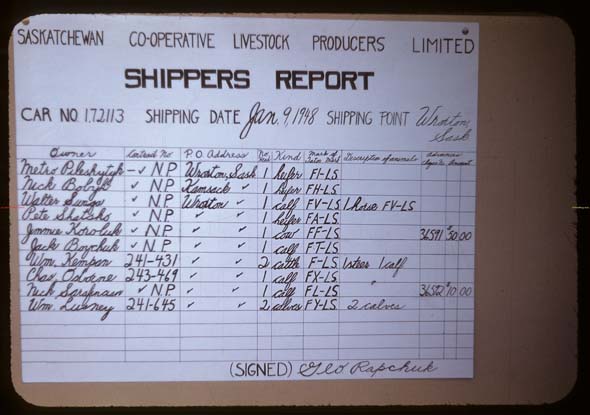 SASKATCHEWAN CO-OPERATIVE LIVESTOCK PRODUCERS LIMITED
SHIPPERS REPORT
CAR NO. 172113 SHIPPING DATE Jan. 9, 1948 SHIPPING POINT Wroxton, Sask
Owner Contract No P.O. Address No. Kind Mark of Description of animals Advances Amount
Metro - ✓ N.P Wroxton, Sask 1 heifer FI-LS
Nick ✓ N.P Kamsack ✓ 1 FH-LS
Walter ✓ N.P Wroxton ✓ 1 calf FV-LS 1 horse FV-LS
Pete ✓ N.P ✓ ✓ 1 heifer FA-LS
Jimmie Koroluk ✓ N.P ✓ ✓ 1 cow FF-LS 36591 $50.00
Jack Boychuk ✓ N.P ✓ ✓ 1 calf FT-LS
Wm. Kempen 241-431 ✓ ✓ 2 cattle F-LS 1 steer 1 calf
Chas. Osborne 243-469 ✓ ✓ 1 calf FX-LS "
Nick ✓ N.P ✓ ✓ 1 calf FL-LS $10.00
Wm. 241-645 ✓ ✓ 2 calves FY-LS 2 calves
(SIGNED) Geo Rapchuk